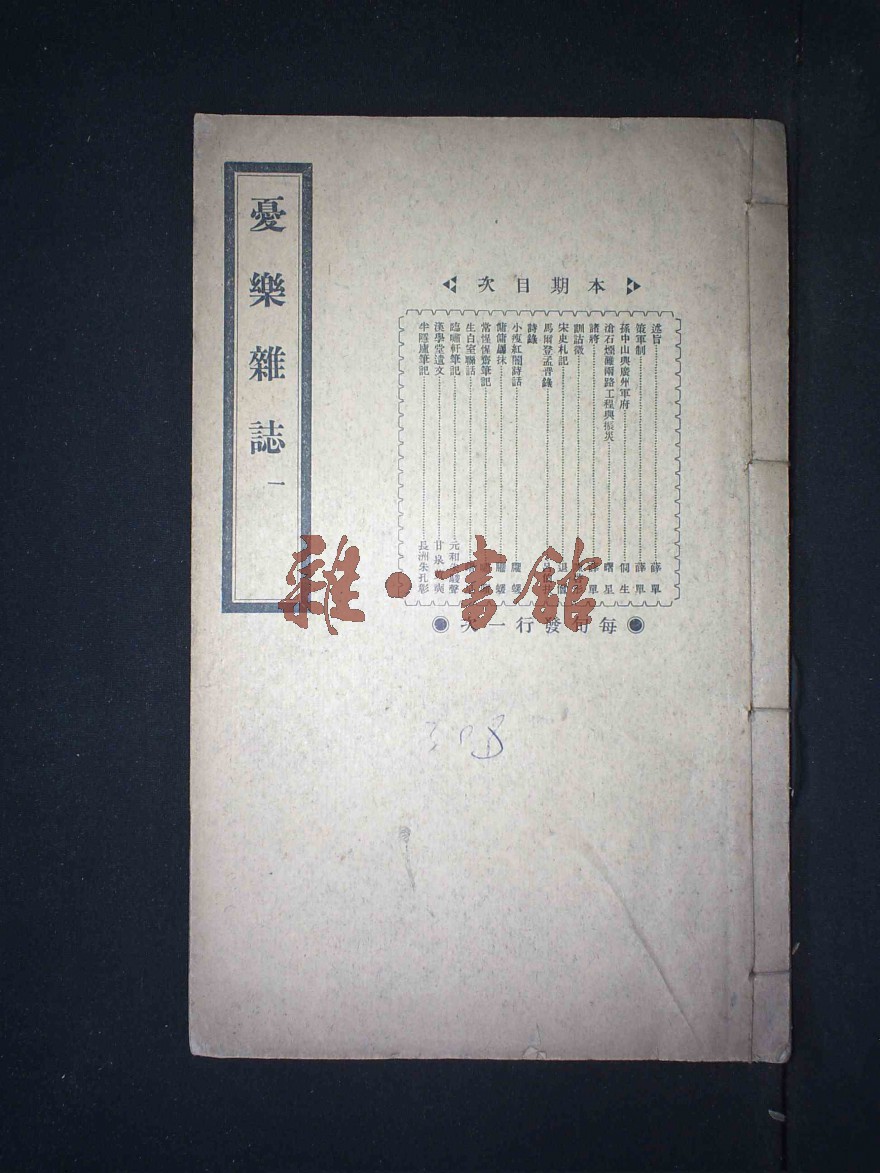 憂樂雜誌 一
本期目次
述旨 薛單
策軍制 薛單
孫中山與廣州軍府 侗生
滄石煙濰兩路工程與振災 曙星
諸將 單
訓詁微
宋史札記 退
馬爾登孟晉錄
詩錄
小瘦紅閣詩話
慵慵
常惺惺齋筆記
生白室聯話
臨嘯軒筆記 元和 聲
漢學堂遺文 甘泉 奭
半隱廬筆記 長洲朱孔彰
每旬發行一次
雜·書館
308